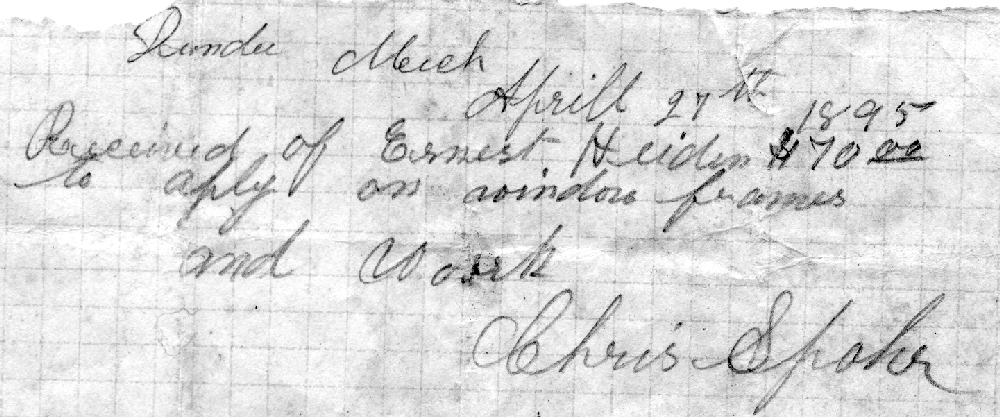 Dundee Mich
Aprill 27th 1895
Received of Ernest Heiden $70.00
to aply on window frames
and Work
Chris Spohr